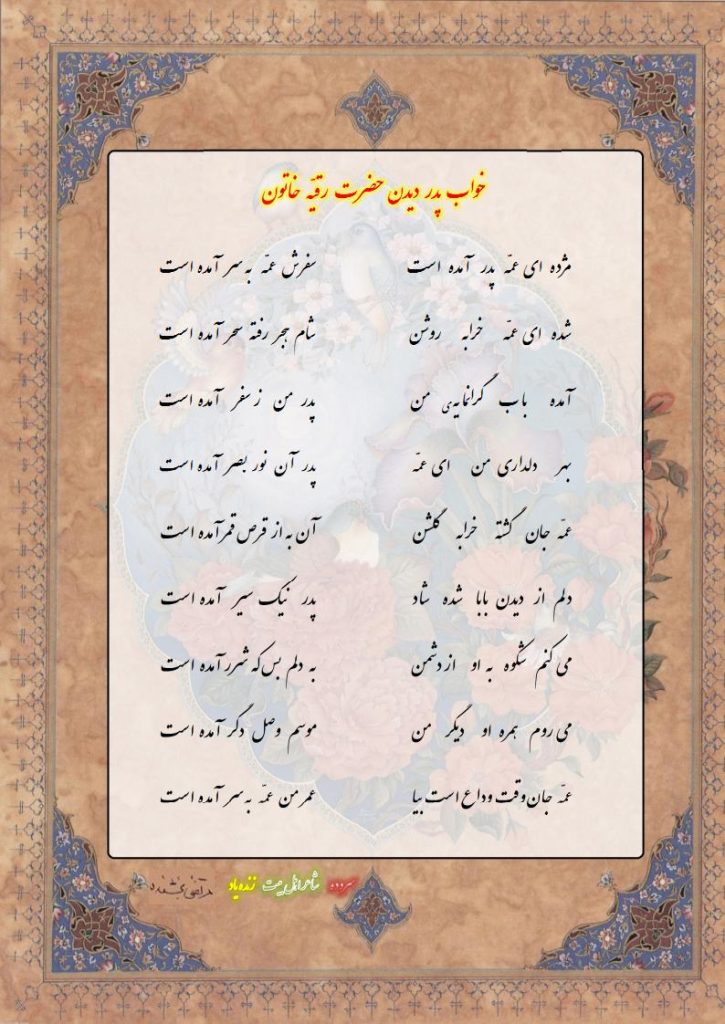 خواب پدر دیدن حضرت رقیّه خاتون
مژده ای عمّه پدر آمده است سفرش عمّه به سر آمده است
شده ای عمّه خرابه روشن شام هجر رفته سحر آمده است
آمده باب گرانمایه‌ی من پدر من ز سفر آمده است
بهر دلداری من ای عمّه پدر آن نور بصر آمده است
عمّه جان گشته خرابه گلشن آن به از قرص قمر آمده است
دلم از دیدن بابا شده شاد پدر نیک سیر آمده است
می کنم شکوه به او از دشمن به دلم بس که شرر آمده است
می روم همره او دیگر من موسم وصل دگر آمده است
عمّه جان وقت وداع است بیا عمر من عمّه به سر آمده است
سروده شاعر اهل بیت زنده یاد